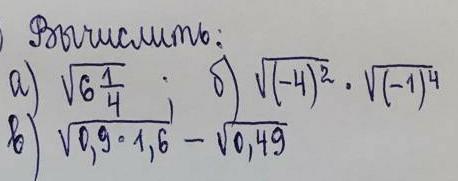 ) Вычислить:
а) √(6 1/4) ; б) √((-4)²) · √((-1)⁴)
в) √(0,9·1,6) − √(0,49)